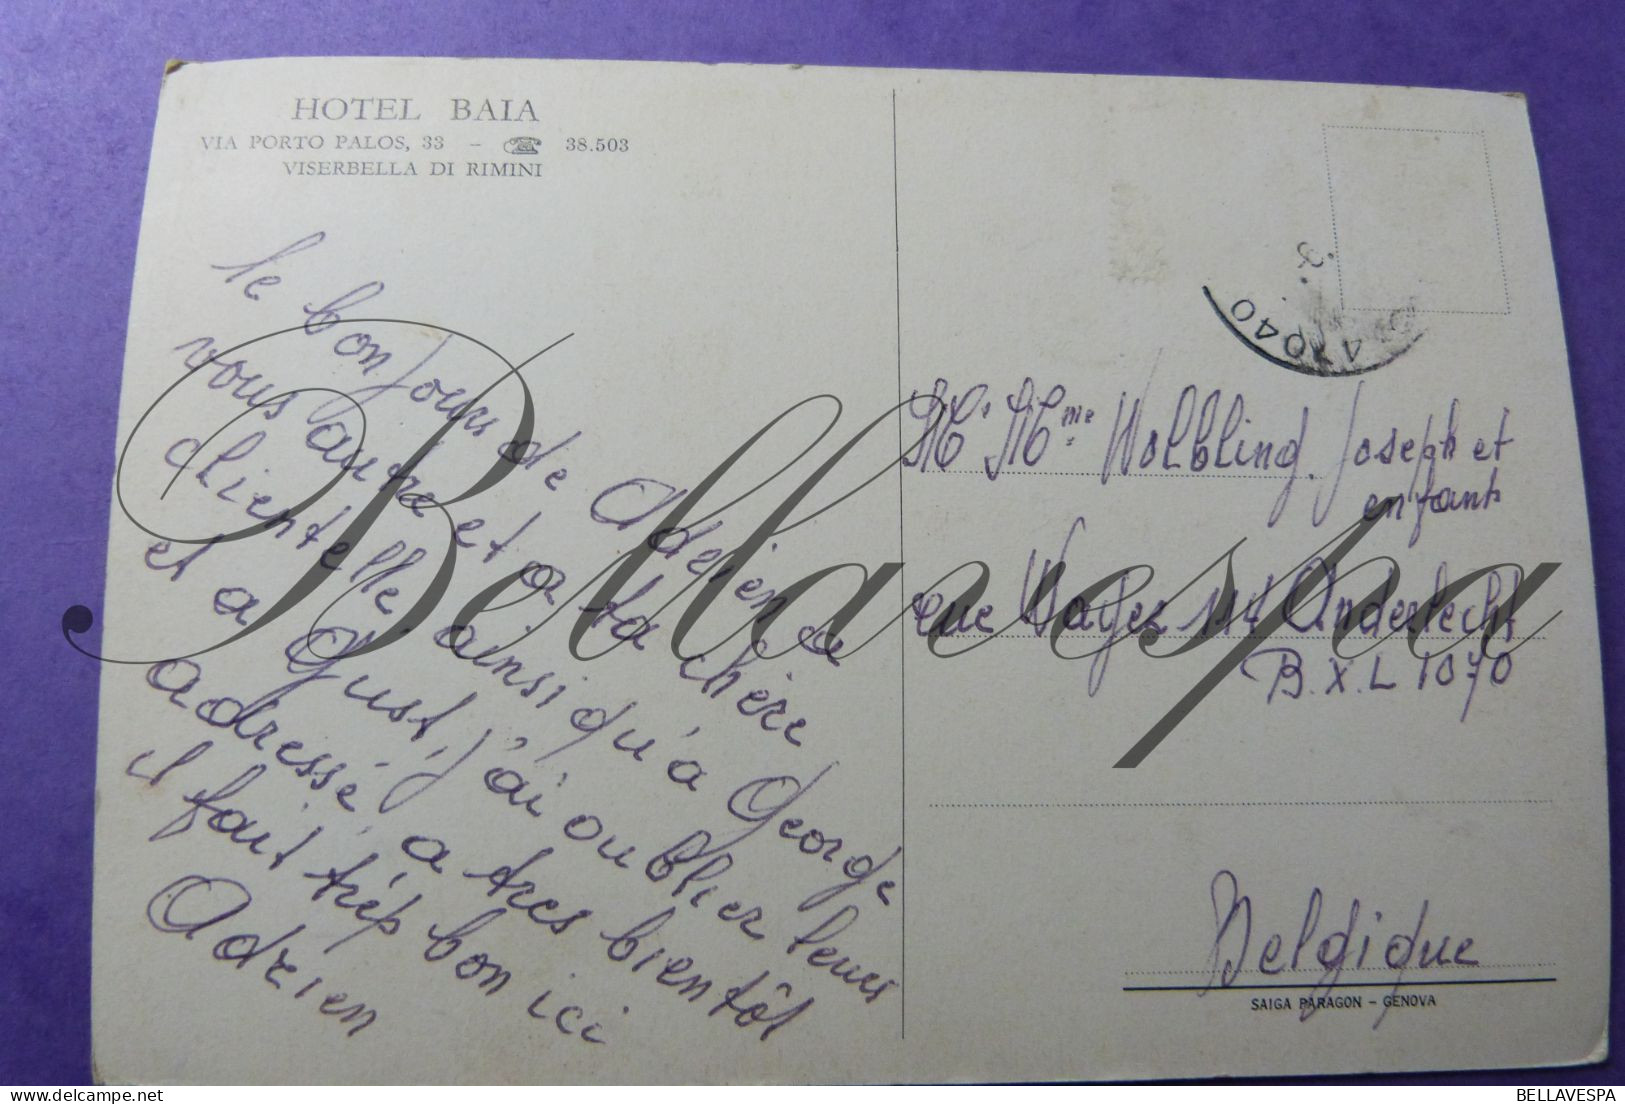 HOTEL BAIA
VIA PORTO PALOS, 33 - ☎ 38.503
VISERBELLA DI RIMINI
le bonjour de Adrien a
vous autre et a ta chère
clientelle ainsi qu'a George
et a Gust, j'ai oublier leurs
adressé, a tres bientôt
il fait trép bon ici
Adrien
47040
Mr Mme Wolbling. Joseph et
enfants
rue Wayez 114 Anderlecht
B.X.L 1070
Belgique
SAIGA PARAGON - GENOVA
Bellavespa
BELLAVESPA